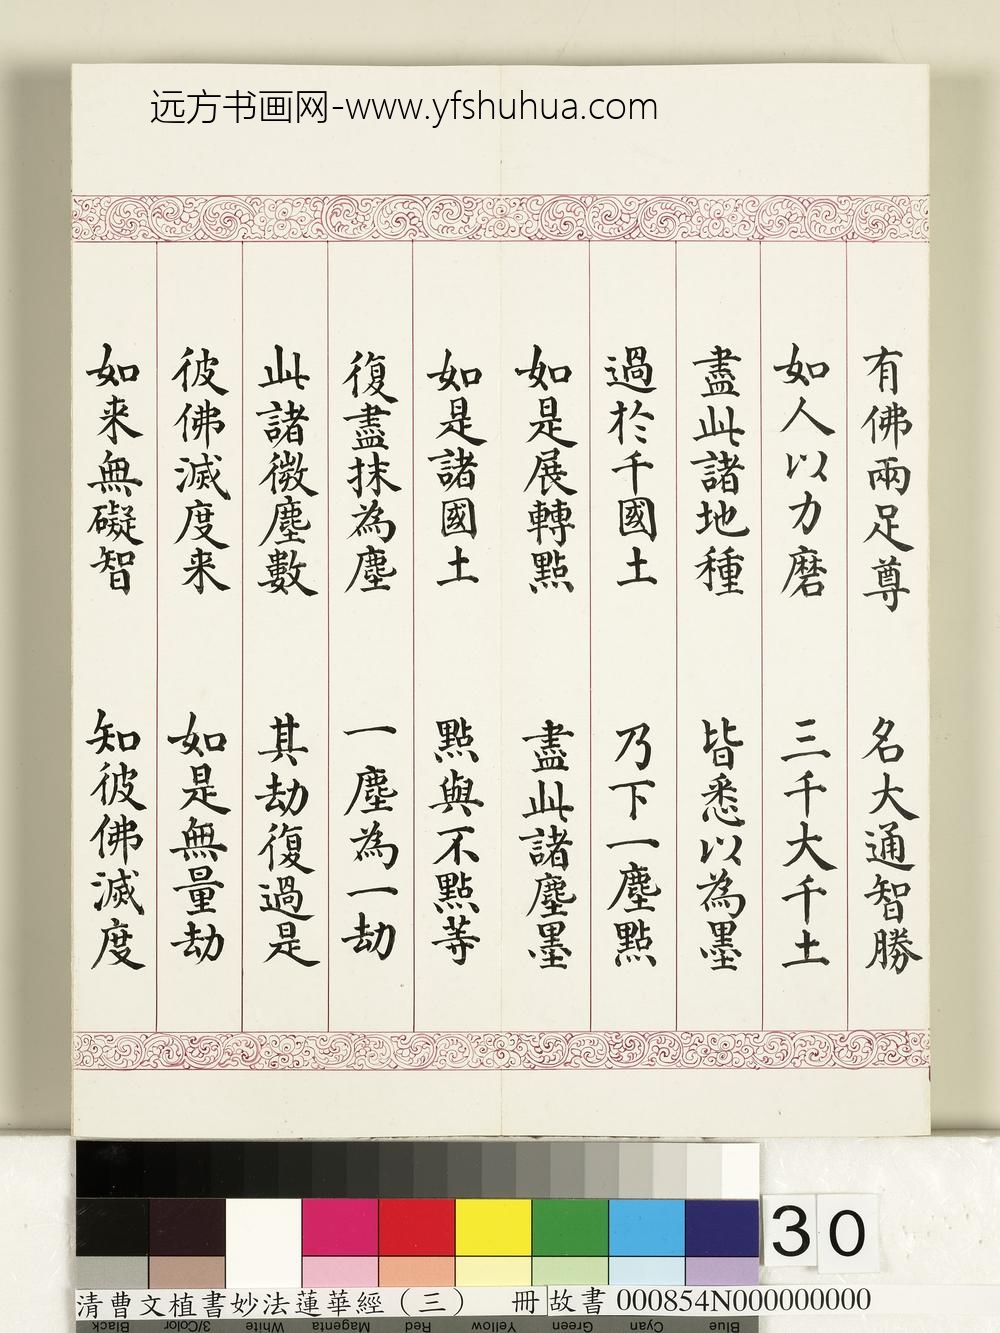 远方书画网-www.yfshuhua.com
有佛兩足尊 名大通智勝
如人以力磨 三千大千土
盡此諸地種 皆悉以為墨
過於千國土 乃下一塵點
如是展轉點 盡此諸塵墨
如是諸國土 點與不點等
復盡抹為塵 一塵為一劫
此諸微塵數 其劫復過是
彼佛滅度来 如是無量劫
如来無礙智 知彼佛滅度
30
清曹文植書妙法蓮華經（三） 冊 故書 000854N000000000
Black 3/Color White Magenta Red Yellow Green Cyan Blue